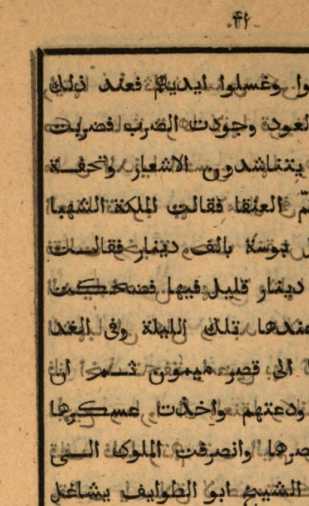 ٤١
وا وغسلوا ايديهم فعند ذلك
لعودة وجودت الضرب فضربت
يتناشدون الاشعار وتحفة
العنقا فقالت الملكة الشهبا
بوسة بالف دينار فقالت
دينار قليل فيها فضحكت
عندها تلك الليلة وفى الغدا
الى قصر ميمون ثم ان
ودعتهم واخذت عسكرها
صرها وانصرفت الملوك الى
الشيخ ابو الطوايف يشاغل